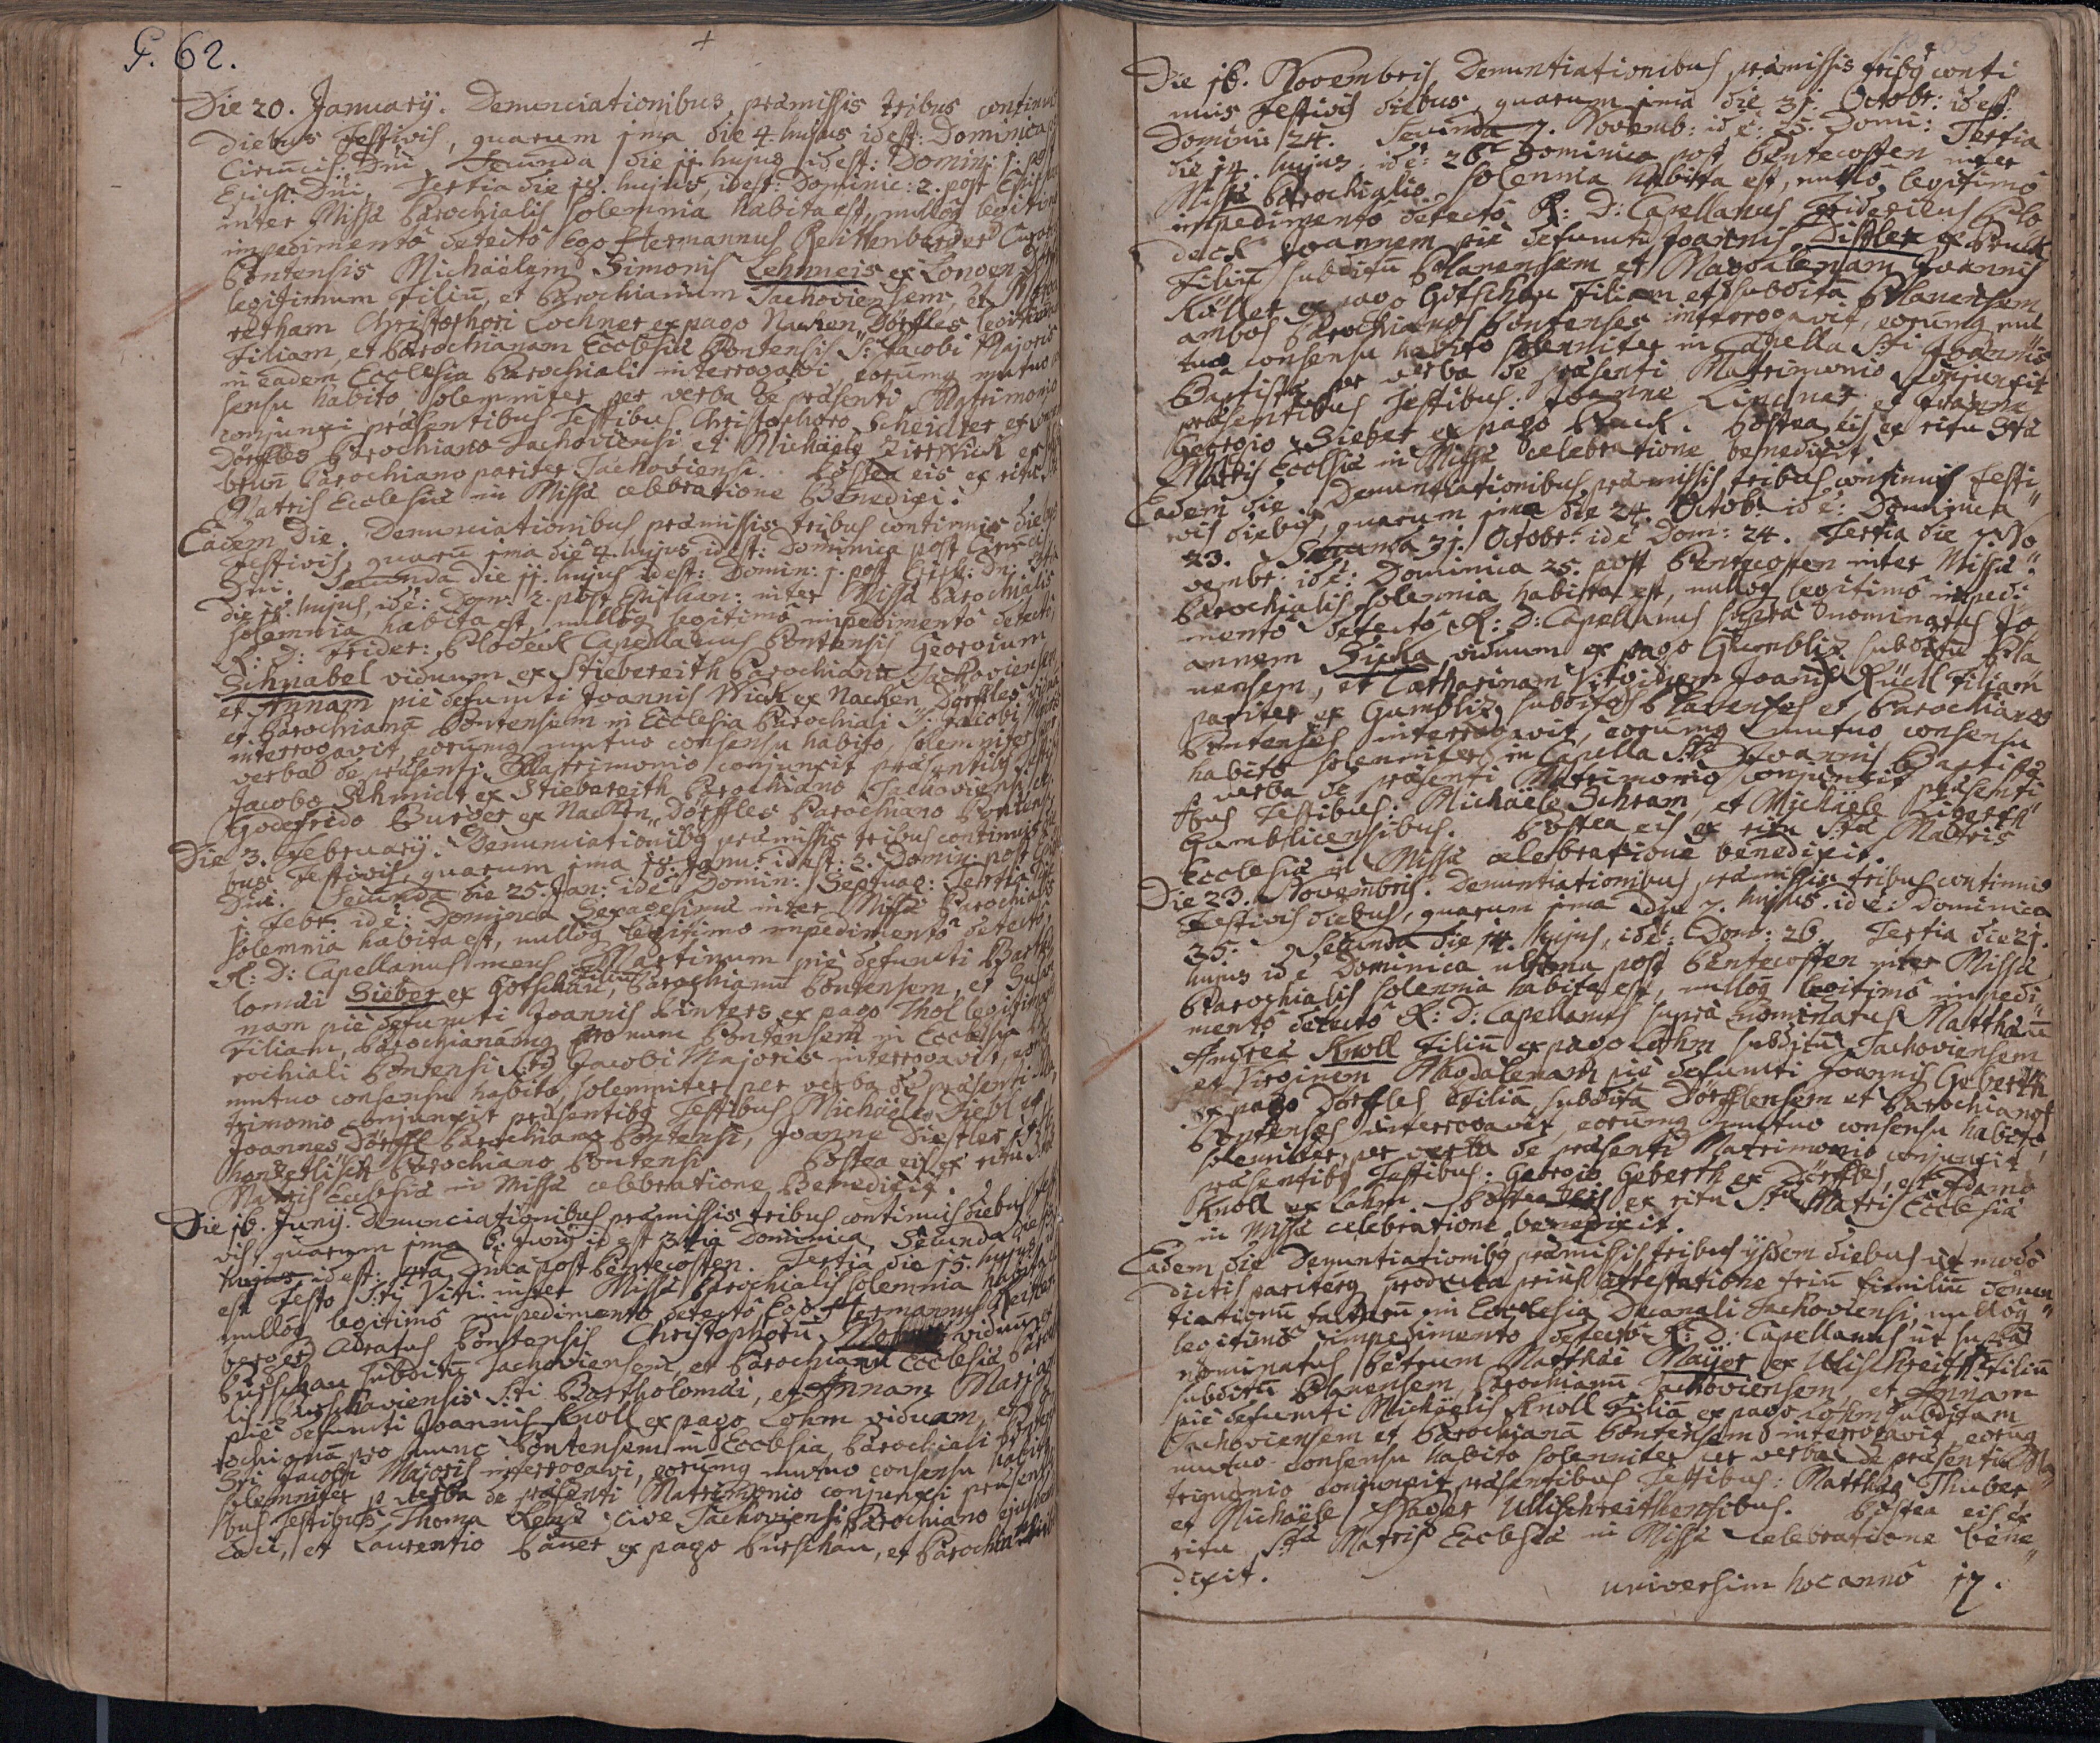 P. 62.
Die 20. Januarÿ. Denunciationibus præmissis tribus continuis
diebus Festivis, quarum 1ma die 4. hujus idest: Dominica
Circūcis: Dni Secunda die 11. hujus idest: Domin: 1. post
Epiph: Dni, Tertia die 18. hujus, idest: Dominic: 2. post Epiph
inter Missæ Parochialis solemnia habita est, nullóq legitimo
impedimentô detectô Ego Hermannus Reittenberger Curat
Pontensis Michäelem Simonis Lehmeis ex
legitimum Filiū, et Parochianum Tachoviensem, et
retham Christophori Lochner ex pago Nacken„Dörffles legitimam
Filiam, et Parochianam Ecclesiæ Pontensis S: Jacobi Majoris
in eadem Ecclesia Parochiali interrogavi, eorumq mutuo
sensu habito, solemniter per verba de præsenti Matrimonio
conjunxi præsentibus Testibus, Christophoro Scheidler ex
Dörffles Parochiano Tachoviensi et Michäele Zierwick ex
brun Parochiano pariter Tachoviensi. Postea eis ex ritu
Matris Ecclesiæ in Missæ celebratione Benedixi.
Eadem Die. Denunciationibus præmissis tribus continuis diebus
Festivis, quarū 1ma die 4. hujus idest: Dominica post Circūcis
Dni. Secunda die 11. hujus idest: Domin: 1. post Epiph: Dn:
die 18. hujus, idē: Dom: 2. post Epiphan: inter Missæ Parochialis
solemnia habita est, nullóq legitimô impedimentô detectô,
R: D: Frider: Plodeck Capellanus Pontensis Georgium
Schnabel viduum ex Stiebereith Parochianū Tachoviensem
et Annam piè defuncti Joannis Wick ex Nacken„Dörffles
et Parochianā Pontensem in Ecclesia Parochiali S: Jacobi
interrogavit, eorumq mutuo consensu habito, solemniter
verba de præsenti Matrimonio conjunxit præsentibq
Jacobo Schmidt ex Stiebereith Parochiano Tachoviensi, et
Godefrido Burger ex Nacken„Dörffles Parochiano Pontensi
Die 3. Februarÿ. Denunciationibq præmissis tribus continuis
bus Festivis, quarum 1ma 18: Janu: idest: 2. Domin: post
Dni. Secunda die 25. Jan: idē: Domin: Septuag: Tertia
1. Febr: idē: Dominica Sexagesima inter Missæ Parochialis
solemnia habita est, nullóq legitimo impedimentô detectô,
R: D: Capellanus meus Martinum piè defuncti Bartho
lomæi Sieber ex Gotschau, Filiū Parochianū Pontensem, et Susan
nam piè defuncti Joannis Linters ex pago Thol legitimam
Filiam, Parochianámq pro nunc Pontensem in Ecclesia
rochiali Pontensi S:ti Jacobi Majoris interrogavit, eor
mutuo consensu habito, solemniter per verba de præsenti
trimonio conjunxit præsentibq Testibus Michäele Diebl ex
Joannes„Dörffl Parochiano Pontensi, Joanne Distler
honsetlisch Parochiano Pontensi Postea eis ex ritu
Matris Ecclesiæ in Missæ celebratione Benedixit.
Die 16. Junÿ. Denunciationibus præmissis tribus continuis diebus
vis, quarum 1ma 6. Junÿ id est 3tia Dominica, Secunda
hujus idest: 4ta Dnica post Pentecosten. Tertia die 15. hujus
est Festo S:ti Viti inter Missæ Parochialis solemnia habita
nullóq legitimô impedimento detectô Ego Hermannus Reitten
berger Curatus Pontensis Christophorū viduum
Purschau subditū Tachoviensem, et Parochianū Ecclesiæ
lis Purschaviensis S:ti Bartholomæi, et Annam Mariam
piè defuncti Joannis Knoll ex pago Lohm viduam, et
rochianā pro nunc Pontensem in Ecclesia Parochiali
Sti Jacobi Majoris interrogavi, eorumq mutuo consensu habito
solemniter p verba de præsenti Matrimonio conjunxi præsenti
bus Testibus, Thoma Lenz cive Tachoviensi Parochiano ejusdem
Loci, et Laurentio Bauer ex pago Purschau, et Parochiano
Die 16. Novembris, Denuntiationibus præmissis tribq conti
nuis Festivis diebus, quarum 1ma die 31. Octobr: idest:
Domini: 24. Secunda 7. Novemb: id ē: 25. Domi: Tertia
die 14. hujus. idē: 26. Dominica post Pentecosten inter
Missæ Parochialis solennia habita est, nullóq legitimô
impedimentô detectô R: D: Capellanus Fridericus Plo
deck Joannem piè defuncti Joannis Distler ex Bruck
Filiū subditū Planensem et Magdalenam Joannis
Köller ex pago Gotschau Filiam et subditā Planensem
ambos Parochianos Pontenses interrogavit, eorumq mu
tuo consensu habito solenniter in Capella S:ti Joannis
Baptistæ per verba de præsenti Matrimonio conjunxit
præsentibus Testibus: Joanne Lindner et Joanne
Georgio Sieber ex pago Bruck. Postea eis ex ritu Stæ
Matris Ecclesiæ in Missæ celebratione benedixit.
Eadem die Denuntiationibus præmissis tribus continuis Festi„
vis diebus, quarum 1ma die 24. Octob: id ē: Dominica
23. Secunda 31. Octobr: idē Dom: 24. Tertia die 7. No
vembr: idē: Dominica 25. post Pentecosten inter Missæ
Parochialis solennia habita est, nullóq legitimô impedi
mentô detectô R: D: Capellanus suprà Enominatus Jo
annem Sicka viduum ex pago Gumpliz subditū Pla
nensem, et Catharinam Virginem Joanis Rüell Filiam
pariter ex Gumpliz subditos Planenses et Parochianos
Pontenses interrogavit, eorumq mutuo consensu
habito solenniter in Capella S:ti Joannis Baptistæ
verba de præsenti Matrimonio conjunxit præsenti
bus Testibus: Michäele Schram et Michäele Siberth
Gumplicensibus. Postea eis ex ritu S:tæ Matris
Ecclesiæ in Missæ celebratione benedixit.
Die 23. Novembris. Denuntiationibus præmissis tribus continuis
Festivis diebus, quarum 1ma die 7. hujus. id ē: Dominica
25. Secunda die 14. hujus, idē: Dom: 26. Tertia die 21.
hujus id ē Dominica ultima post Pentecosten inter Missæ
Parochialis solennia habita est, nullóq legitimô impedi
mentô detectô R: D: Capellanus suprà Enominatus Matthæū
Andreæ Knoll Filiū ex pago Lohm subditū Tachoviensem
et Virginem Magdalenam piè defuncti Joannis Geberth
ex pago Dörffles Filiā subditā Dörfflensem et Parochianos
Pontenses interrogavit, eorumq mutuo consensu habito,
solenniter per verba de præsenti Matrimonio conjunxit
præsentibq Testibus: Georgio Geberth ex Dörffles, et Adamo
Knoll ex Lohm. Postea eis ex ritu S:tæ Matris Ecclesiæ
in Missæ celebratione benedixit.
Eadem die Denuntiationibq præmissis tribus ÿssem diebus ut modò
dictis pariterq producta prius attestatione triū similiū denun
tiationū factarū in Ecclesia Decanali Tachoviensi, nullóq
legitimô impedimento detectô R: D: Capellanus ut suprà
nominatus Petrum Matthæi Maÿer ex Ulischreith Filiū
subditū Planensem, Parochianū Tachoviensem, et Annam
piè defuncti Michäelis Knoll Filiā ex pago Lohm subditam
Tachoviensem et Parochianā Pontensem interrogavit, eorumq
mutuo consensu habito solenniter per verba de præsenti Ma
trimonio conjunxit præsentibus Testibus: Matthæo Thuber
et Michäele Mayer Ullischreithensibus. Postea eis ex
ritu S:tæ Matris Ecclesiæ in Missæ celebratione bene„
dixit.
universim hoc annô 17.